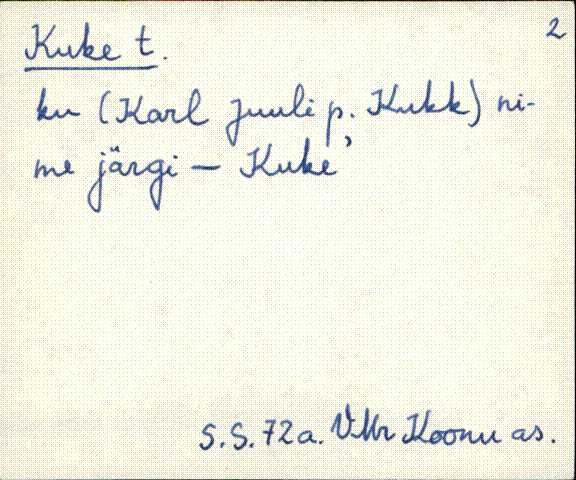 2
Kuke t.
ku (Karl Juuli p. Kukk) ni-
me järgi – Kuke'
S.S. 72a. VMr Koonu as.